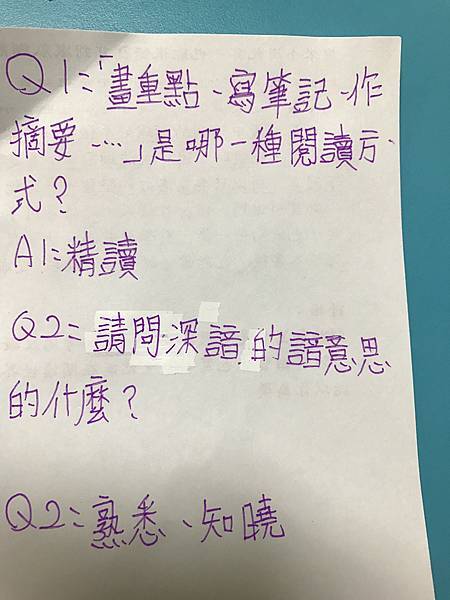 Q1:「畫重點、寫筆記、作
摘要…」是哪一種閱讀方
式?
A1:精讀
Q2:請問深諳的諳意思
的什麼?
Q2:熟悉、知曉